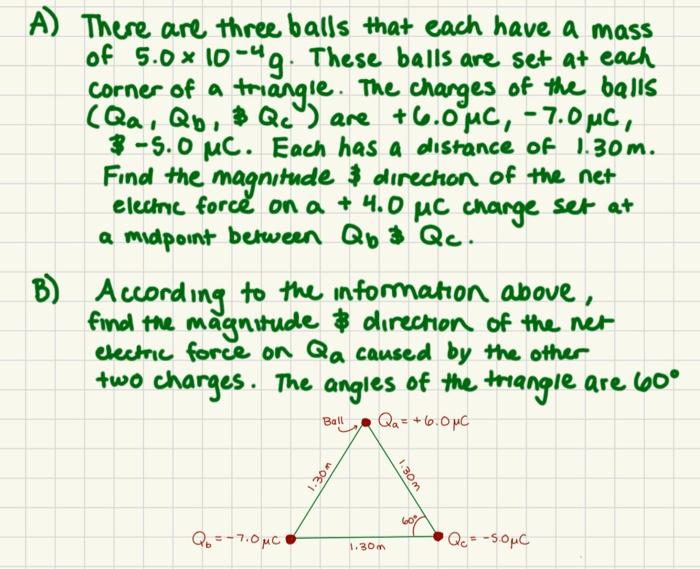 A) There are three balls that each have a mass
of 5.0 × 10⁻⁴g. These balls are set at each
corner of a triangle. The charges of the balls
(Qa, Qb, & Qc) are +6.0 μC, -7.0 μC,
& -5.0 μC. Each has a distance of 1.30 m.
Find the magnitude & direction of the net
electric force on a + 4.0 μC charge set at
a midpoint between Qb & Qc.
B) According to the information above,
find the magnitude & direction of the net
electric force on Qa caused by the other
two charges. The angles of the triangle are 60°
Ball
Qa = +6.0 μC
1.30m
1.30m
60°
Qb = -7.0 μC
Qc = -5.0 μC
1.30m